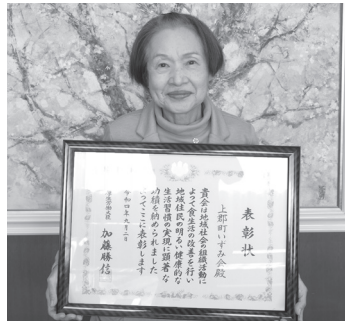 表彰状
上郡町いずみ会殿
貴会は地域社会の組織活動に
よって食生活の改善を行い
地域住民の明るい健康的な
生活習慣の実現に顕著な
功績を納められました
ってここに表彰します
令和四年九月二日
厚生労働大臣
加藤勝信